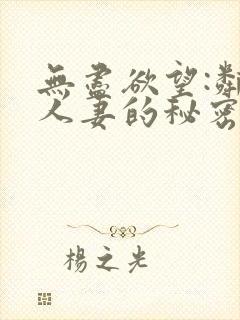 無盡欲望:鄰
人妻的秘密
楊之光